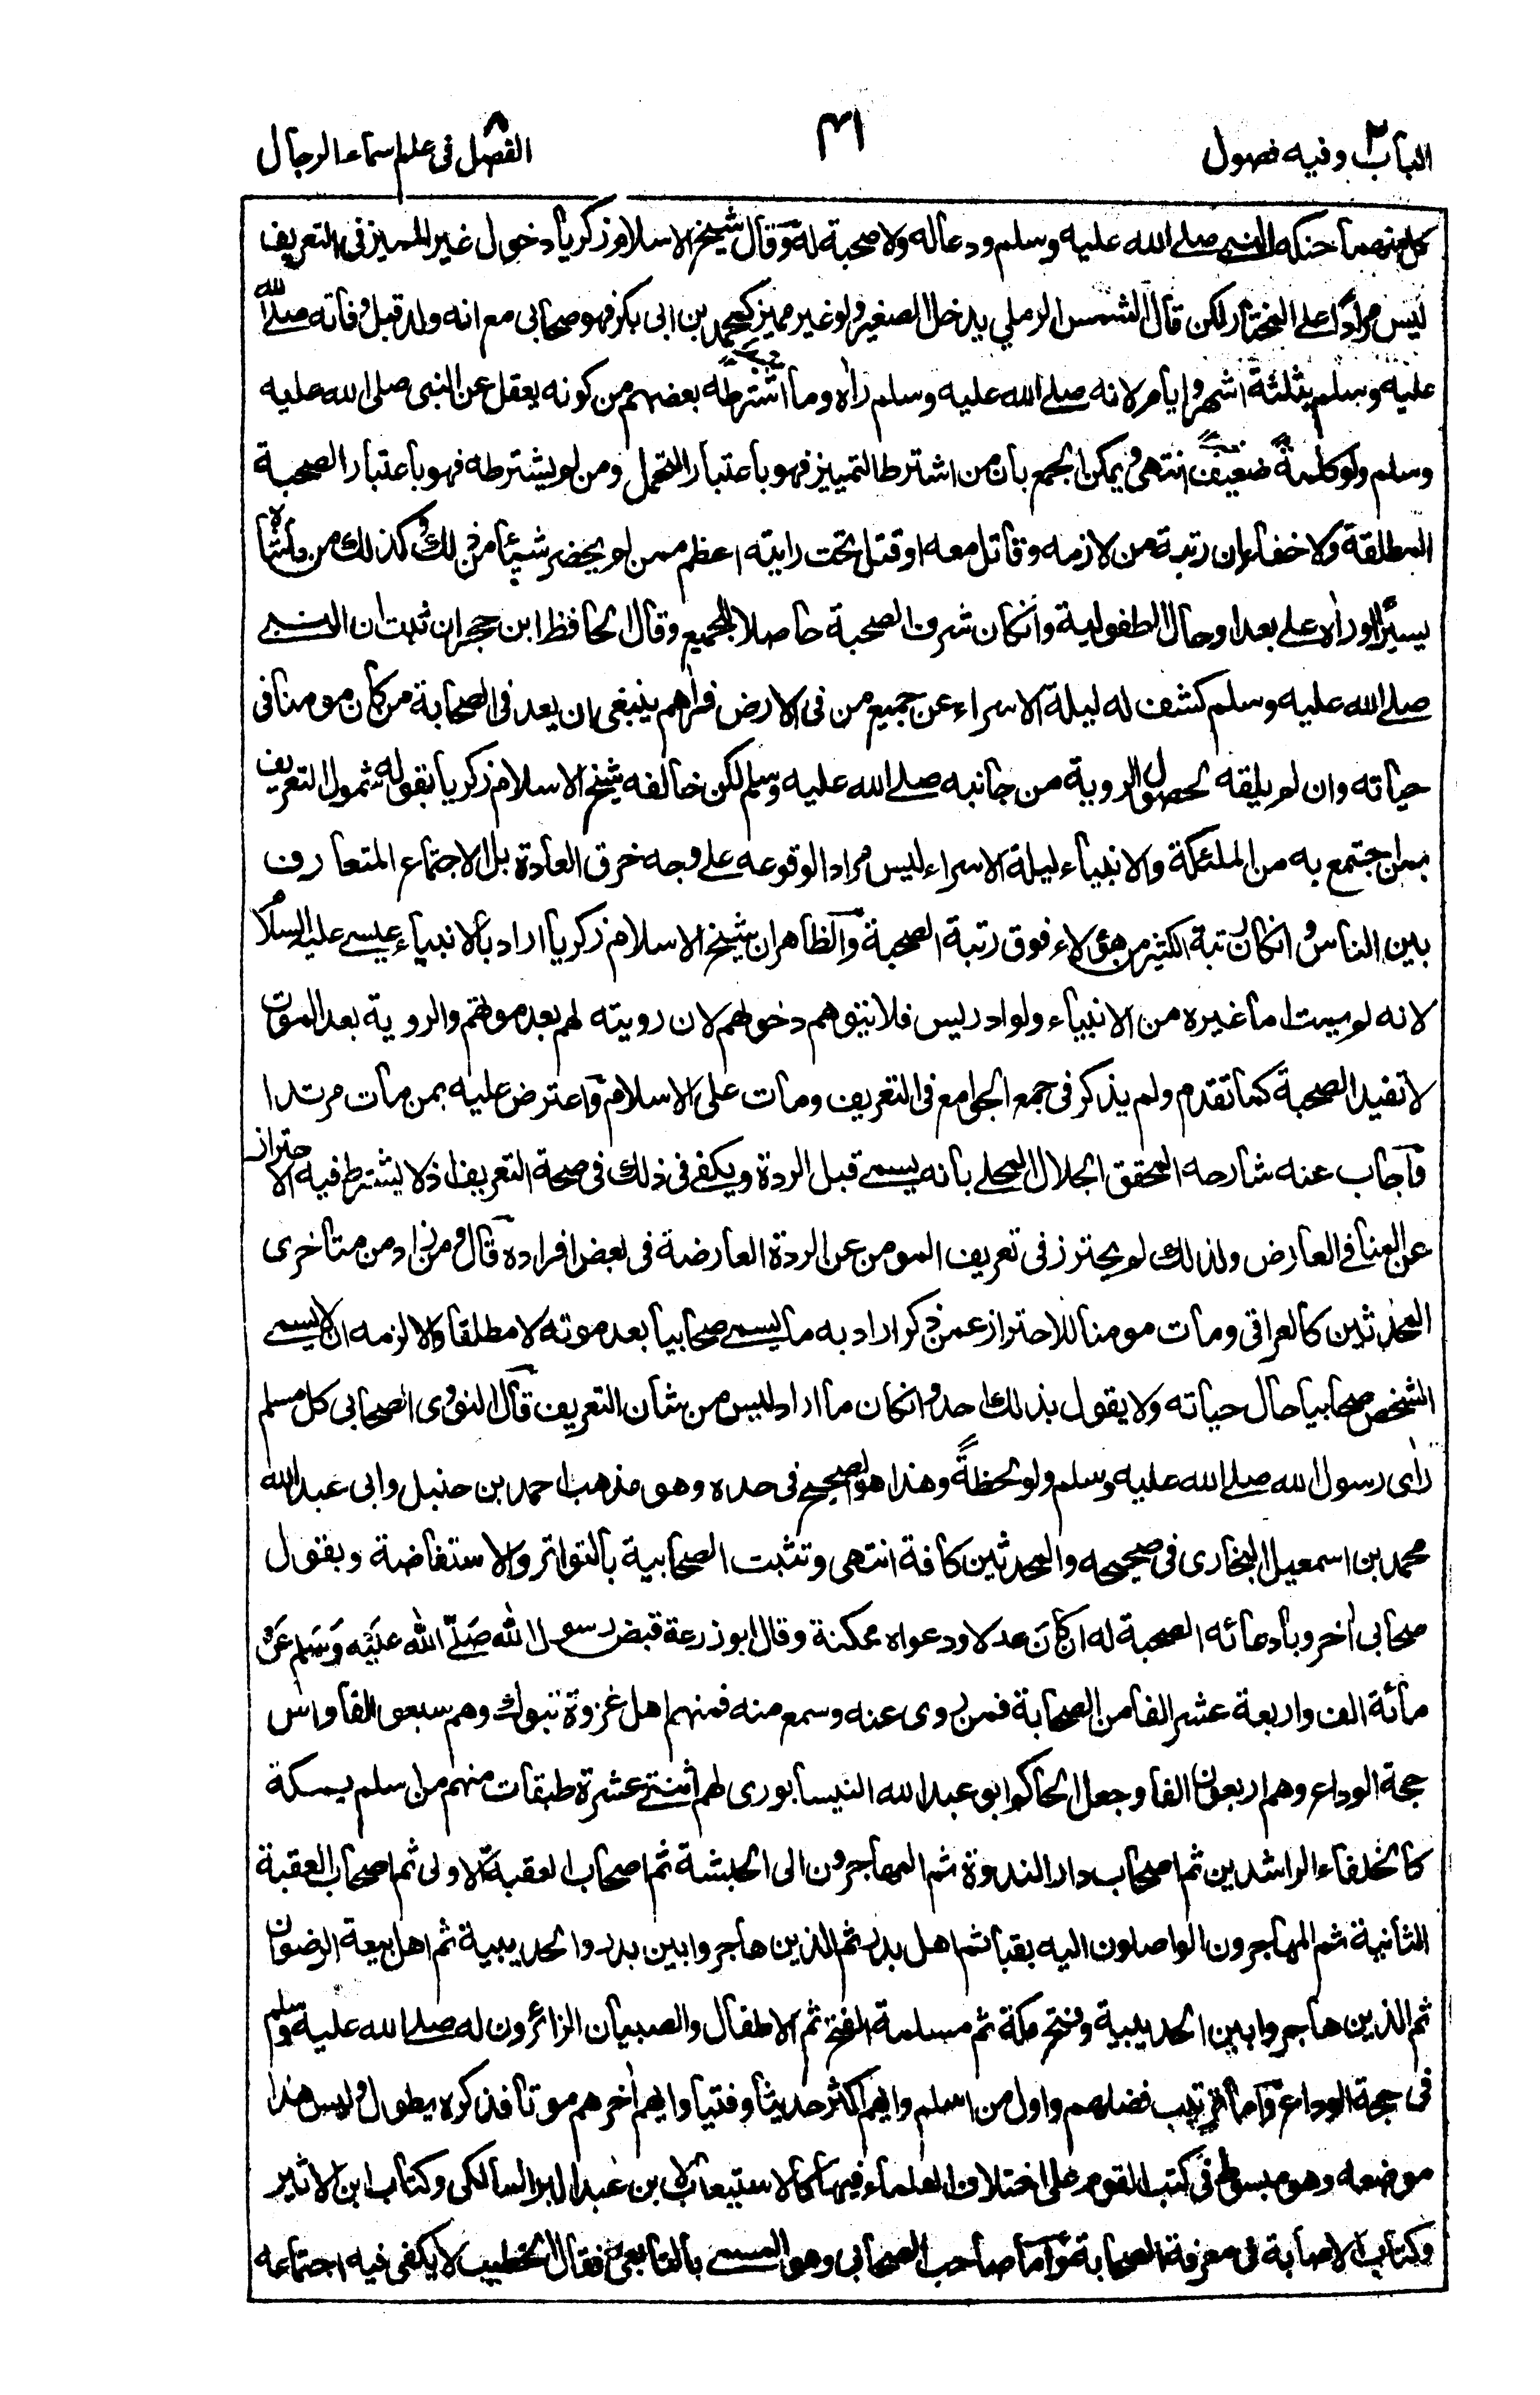 الباب ٢ وفيه فصول
٤١
الفصل ٨ فى علم اسماء الرجال
كل منهما حنكه النبي صلى الله عليه وسلم ودعا له ولا صحبة له وقال شيخ الاسلام زكريا دخول غير المميز فى التعريف
ليس مرادا على المختار لكن قال الشمس الرملي يدخل الصغير ولو غير مميز كمحمد بن ابى بكر فهو صحابى مع انه ولد قبل وفاته صلى الله
عليه وسلم بثلثة اشهر وايام لانه صلى الله عليه وسلم راٰه وما اشترطه بعضهم من كونه يعقل عن النبى صلى الله عليه
وسلم ولو كلمة ضعيف انتهى ويمكن الجمع بان من اشترط التمييز فهو باعتبار التحمل ومن لم يشترطه فهو باعتبار الصحبة
المطلقة ولا خفاء ان رتبة من لازمه وقاتل معه او قتل تحت رايته اعظم ممن لم يحضر شيئا من ذلك وكذلك من ماشاه
يسيرا او راٰه على بعد او حال الطفولية وانكان شرف الصحبة حاصلا للجميع وقال الحافظ ابن حجر ان ثبت ان النبي
صلى الله عليه وسلم كشف له ليلة الاسراء عن جميع من فى الارض فراٰهم ينبغى ان يعد فى الصحابة من كان مومنا فى
حياته وان لم يلقه لحصول الروية من جانبه صلى الله عليه وسلم لكن خالفه شيخ الاسلام زكريا بقوله شمول التعريف
بمن اجتمع به من الملئكة والانبياء ليلة الاسراء ليس مرادا لوقوعه على وجه خرق العادة بل الاجتماع المتعارف
بين الناس وانكان رتبة الكثير من هؤلاء فوق رتبة الصحبة والظاهر ان شيخ الاسلام زكريا اراد بالانبياء عيسى عليه السلام
لانه لم يمت اما غيره من الانبياء ولو ادريس فلا نتوهم دخولهم لان رويته لهم بعد موتهم والروية بعد الموت
لا تفيد الصحبة كما تقدم ولم يذكر فى جمع الجوامع فى التعريف ومات على الاسلام واعترض عليه بمن مات مرتدا
واجاب عنه شارحه المحقق الجلال المحلي بانه يسمى قبل الردة ويكفى فى ذلك فى صحة التعريف اذ لا يشترط فيه الاحتراز
عن المنافى العارض ولذلك لم يحترز فى تعريف المومن عن الردة العارضة فى بعض افراده قال ومن زاد من متاخرى
المحدثين كالعراقى ومات مومنا للاحتراز عمن ذكر اراد به ما يسمى صحابيا بعد موته لا مطلقا والا لزمه ان لا يسمى
الشخص صحابيا حال حياته ولا يقول بذلك احد وانكان ما اراد ليس من شان التعريف قال النووى الصحابى كل مسلم
راٰى رسول الله صلى الله عليه وسلم ولو لحظة وهذا هو الصحيح فى حده وهو مذهب احمد بن حنبل وابى عبد الله
محمد بن اسمعيل البخارى فى صحيحه والمحدثين كافة انتهى وتثبت الصحابية بالتواتر والاستفاضة وبقول
صحابى اٰخر وبادعائه الصحبة له ان كان عدلا ودعواه ممكنة وقال ابو زرعة قبض رسول الله صلى الله عليه وسلم عن
مائة الف واربعة عشر الفا من الصحابة فمن روى عنه وسمع منه فمنهم اهل غزوة تبوك وهم سبعون الفا واٰس
حجة الوداع وهم اربعون الفا وجعل الحاكم ابو عبد الله النيسابورى لهم اثنتى عشرة طبقات منهم من اسلم بمكة
كالخلفاء الراشدين ثم اصحاب دار الندوة ثم المهاجرون الى الحبشة ثم اصحاب العقبة الاولى ثم اصحاب العقبة
الثانية ثم المهاجرون الواصلون اليه بقبا ثم اهل بدر ثم الذين هاجروا بين بدر والحديبية ثم اهل بيعة الرضوان
ثم الذين هاجروا بين الحديبية وفتح مكة ثم مسلمة الفتح ثم الاطفال والصبيان الزائرون له صلى الله عليه وسلم
فى حجة الوداع واما ترتيب فضلهم واول من اسلم وايهم اكثر حديثا وفتيا وايهم اٰخرهم موتا فذكره يطول وليس هذا
موضعه وهو مبسوط فى كتب القوم على اختلاف العلماء فيها كالاستيعاب لابن عبد البر المالكى وكتاب ابن الاثير
وكتاب الاصابة فى معرفة الصحابة واما صاحب الصحابى وهو المسمى بالتابعى فقال الخطيب لا يكفى فيه اجتماعه